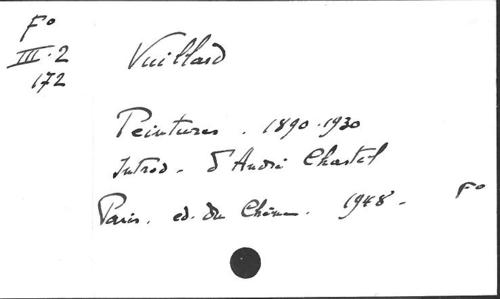 Fo
III.2
172
Vuillard
Peintures. 1890-1930
Introd. d'André Chastel
Paris. ed. du Chêne. 1948. Fo